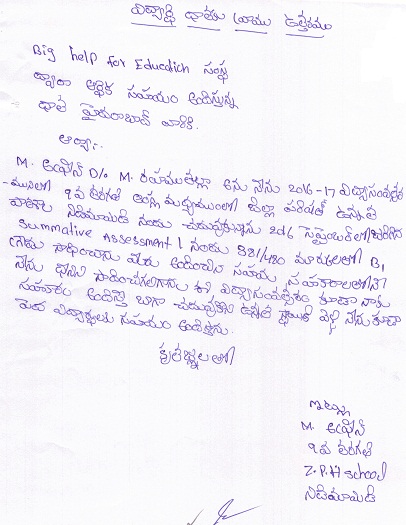 విద్యార్థి దాతకు రాయు ఉత్తరము
Big help for Education సంస్థ
ద్వారా ఆర్థిక సహయం అందిస్తున్న
దాత హైదరాబాద్ వారికి.
ఆర్యా:-
M. అఫ్రీన్ D/o M. రహముతుల్లా అను నేను 2016-17 విద్యాసంవత్సర
-ములో 9వ తరగతి ఆంగ్ల మాధ్యమంలో జిల్లా పరిషత్ ఉన్నత
పాఠశాల నిడిమామిడి నందు చదువుకున్నాను 2016 సెప్టెంబర్‌లో జరిగిన
Summative Assessment 1 నందు 381/480 మార్కులతో B1
గ్రేడు సాధించాను మీరు అందించిన సహాయ, సహకారాలతోనే
నేను దీనిని సాధించగలిగాను ఈ విద్యాసంవత్సరం కూడా నాకు
సహకారం అందిస్తే బాగా చదువుకొని ఉన్నత స్థాయికి వెళ్లి నేను కూడా
పేద విద్యార్థులకు సహయం అందిస్తాను.
కృతజ్ఞతలతో
ఇట్లు
M. అఫ్రీన్
9వ తరగతి
Z.P.H school
నిడిమామిడి